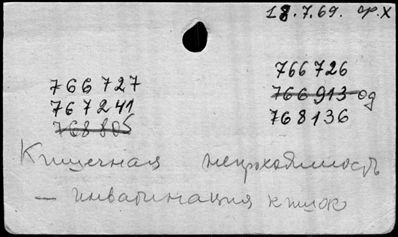 18.7.69. Ф.Х
766727
767241
768805
766726
766913 од
768136
Кишечная непроходимость
— инвагинация кишок